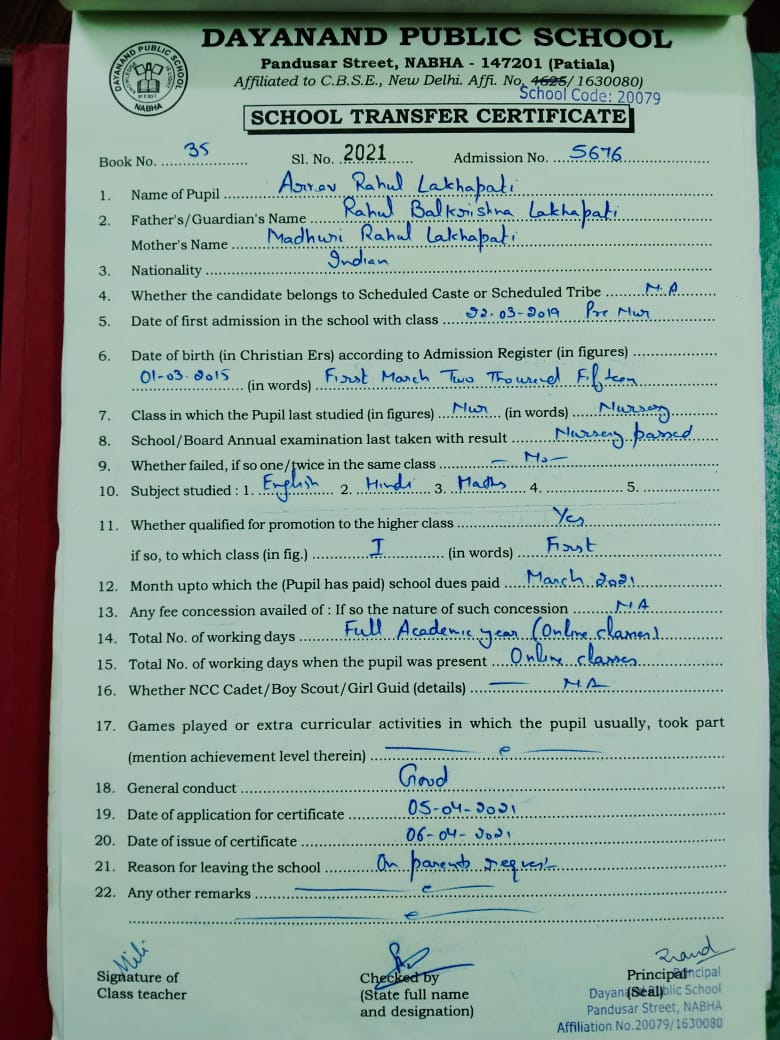 DAYANAND PUBLIC SCHOOL
Pandusar Street, NABHA - 147201 (Patiala)
Affiliated to C.B.S.E., New Delhi. Affi. No. 4625/1630080)
School Code: 20079
DAYANAND PUBLIC SCHOOL
NABHA
SCHOOL TRANSFER CERTIFICATE
Book No. 35 Sl. No. 2021 Admission No. 5676
1. Name of Pupil Arrav Rahul Lakhapati
2. Father's/Guardian's Name Rahul Balkrishna Lakhapati
Mother's Name Madhuri Rahul Lakhapati
3. Nationality Indian
4. Whether the candidate belongs to Scheduled Caste or Scheduled Tribe N.A
5. Date of first admission in the school with class 22-03-2019 Pre Nur
6. Date of birth (in Christian Ers) according to Admission Register (in figures)
01-03-2015 (in words) First March Two Thousand Fifteen
7. Class in which the Pupil last studied (in figures) Nur (in words) Nursery
8. School/Board Annual examination last taken with result Nursery passed
9. Whether failed, if so one/twice in the same class — No —
10. Subject studied : 1. English 2. Hindi 3. Maths 4. 5.
11. Whether qualified for promotion to the higher class Yes
if so, to which class (in fig.) I (in words) First
12. Month upto which the (Pupil has paid) school dues paid March 2021
13. Any fee concession availed of : If so the nature of such concession NA
14. Total No. of working days Full Academic year (Online classes)
15. Total No. of working days when the pupil was present Online classes
16. Whether NCC Cadet/Boy Scout/Girl Guid (details) — NA
17. Games played or extra curricular activities in which the pupil usually, took part
(mention achievement level therein)
18. General conduct Good
19. Date of application for certificate 05-04-2021
20. Date of issue of certificate 06-04-2021
21. Reason for leaving the school On parents request
22. Any other remarks
Mili
Signature of Checked by Principal
Class teacher (State full name (Seal)
and designation)
Principal
Dayanand Public School
Pandusar Street, NABHA
Affiliation No.20079/1630080